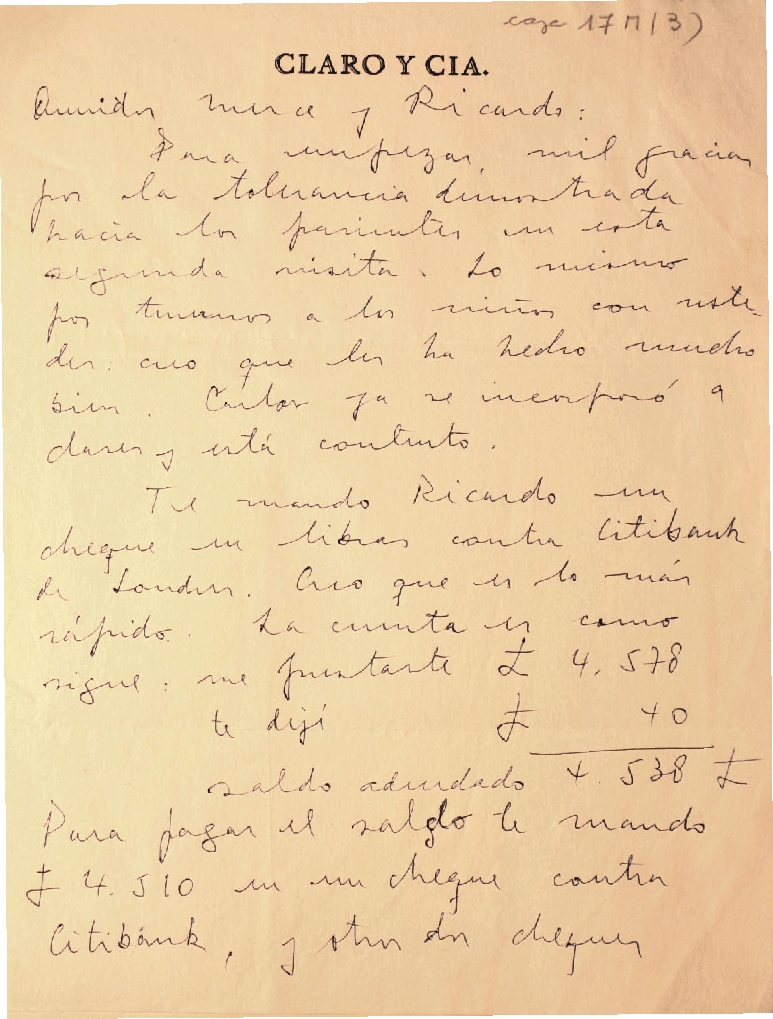 caja 17 M(3)
CLARO Y CIA.
Queridos Merce y Ricardo:
Para empezar, mil gracias
por la tolerancia demostrada
hacia los parientes en esta
segunda visita. Lo mismo
por tenernos a los niños con uste-
des: creo que les ha hecho mucho
bien. Carlos ya se incorporó a
clases y está contento.
Te mando Ricardo un
cheque en libras contra Citibank
de Londres. Creo que es lo más
rápido. La cuenta es como
sigue: me prestaste £ 4.578
te dejé £ 40
saldo adeudado 4.538 £
Para pagar el saldo te mando
£ 4.510 en un cheque contra
Citibank, y otros dos cheques